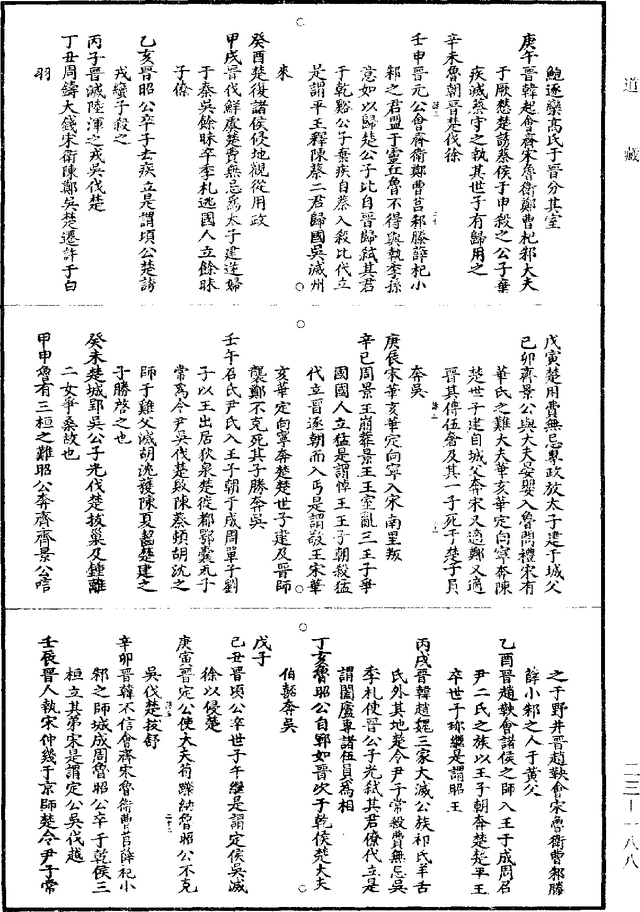 道藏
鮑逐欒高氏于晉分其室
庚午晉韓起會齊宋魯衛鄭曹杞邾大夫
于厥憖楚誘蔡侯于申殺之公子棄
疾滅蔡守之執其世子有歸用之
辛未魯朝晉楚伐徐
壬申晉元公會齊衛鄭曹莒邾滕薛杞小
邾之君盟于靈丘魯不得與執季孫
意如以歸楚公子比自晉歸弒其君
于乾谿公子棄疾自蔡入殺比代立
是謂平王釋陳蔡二君歸國吳滅州
來
癸酉楚復諸侯侵地觀從用政
甲戌晉伐鮮虞楚費無忌為太子建逆婦
于秦吳餘昧卒季札逃國人立餘昧
子僚
乙亥晉昭公卒子去疾立是謂頃公楚誘
戎蠻子殺之
丙子晉滅陸渾之戎吳伐楚
丁丑周鑄大錢宋衛陳鄭災楚遷許于白
羽
戊寅楚用費無忌專政放太子建于城父
己卯齊景公與大夫晏嬰入魯問禮宋有
華氏之難大夫華亥華定向寧奔陳
楚世子建自城父奔宋又適鄭又適
晉其傅伍奢及其一子死于楚子員
奔吳
庚辰宋華亥華定向寧入宋南里叛
辛巳周景王崩葬景王王室亂三王子爭
國國人立猛是謂悼王王子朝殺猛
代立晉逐朝而入丐是謂敬王宋華
亥華定向寧奔楚楚世子建及晉師
襲鄭不克死其子勝奔吳
壬午召氏尹氏入王子朝于成周單子劉
子以王出居狄泉楚徙都鄂囊瓦子
常為令尹吳伐楚敗陳蔡頓胡沈之
師于雞父滅胡沈獲陳夏齧楚建之
子勝啓之也
癸未楚城郢吳公子光伐楚拔巢及鍾離
二女爭桑故也
甲申魯有三桓之難昭公奔齊齊景公唁
之于野井晉趙鞅會宋魯衛曹邾滕
薛小邾之人于黃父
乙酉晉趙鞅會諸侯之師入王于成周召
尹二氏之族以王子朝奔楚楚平王
卒世子珍繼是謂昭王
丙戌晉韓趙魏三家大滅公族祁氏羊舌
氏外其地楚令尹子常殺費無忌吳
季札使晉公子光弒其君僚代立是
謂闔廬專諸伍員為相
丁亥魯昭公自鄆如晉次于乾侯楚大夫
伯嚭奔吳
戊子
己丑晉頃公卒世子午繼是謂定侯吳滅
徐以侵楚
庚寅晉定公使大夫荀躒納魯昭公不克
吳伐楚拔舒
辛卯晉韓不信會齊宋魯衛曹莒薛杞小
邾之師城成周魯昭公卒于乾侯三
桓立其弟宋是謂定公吳伐越
壬辰晉人執宋仲幾于京師楚令尹子常
二三—一八八